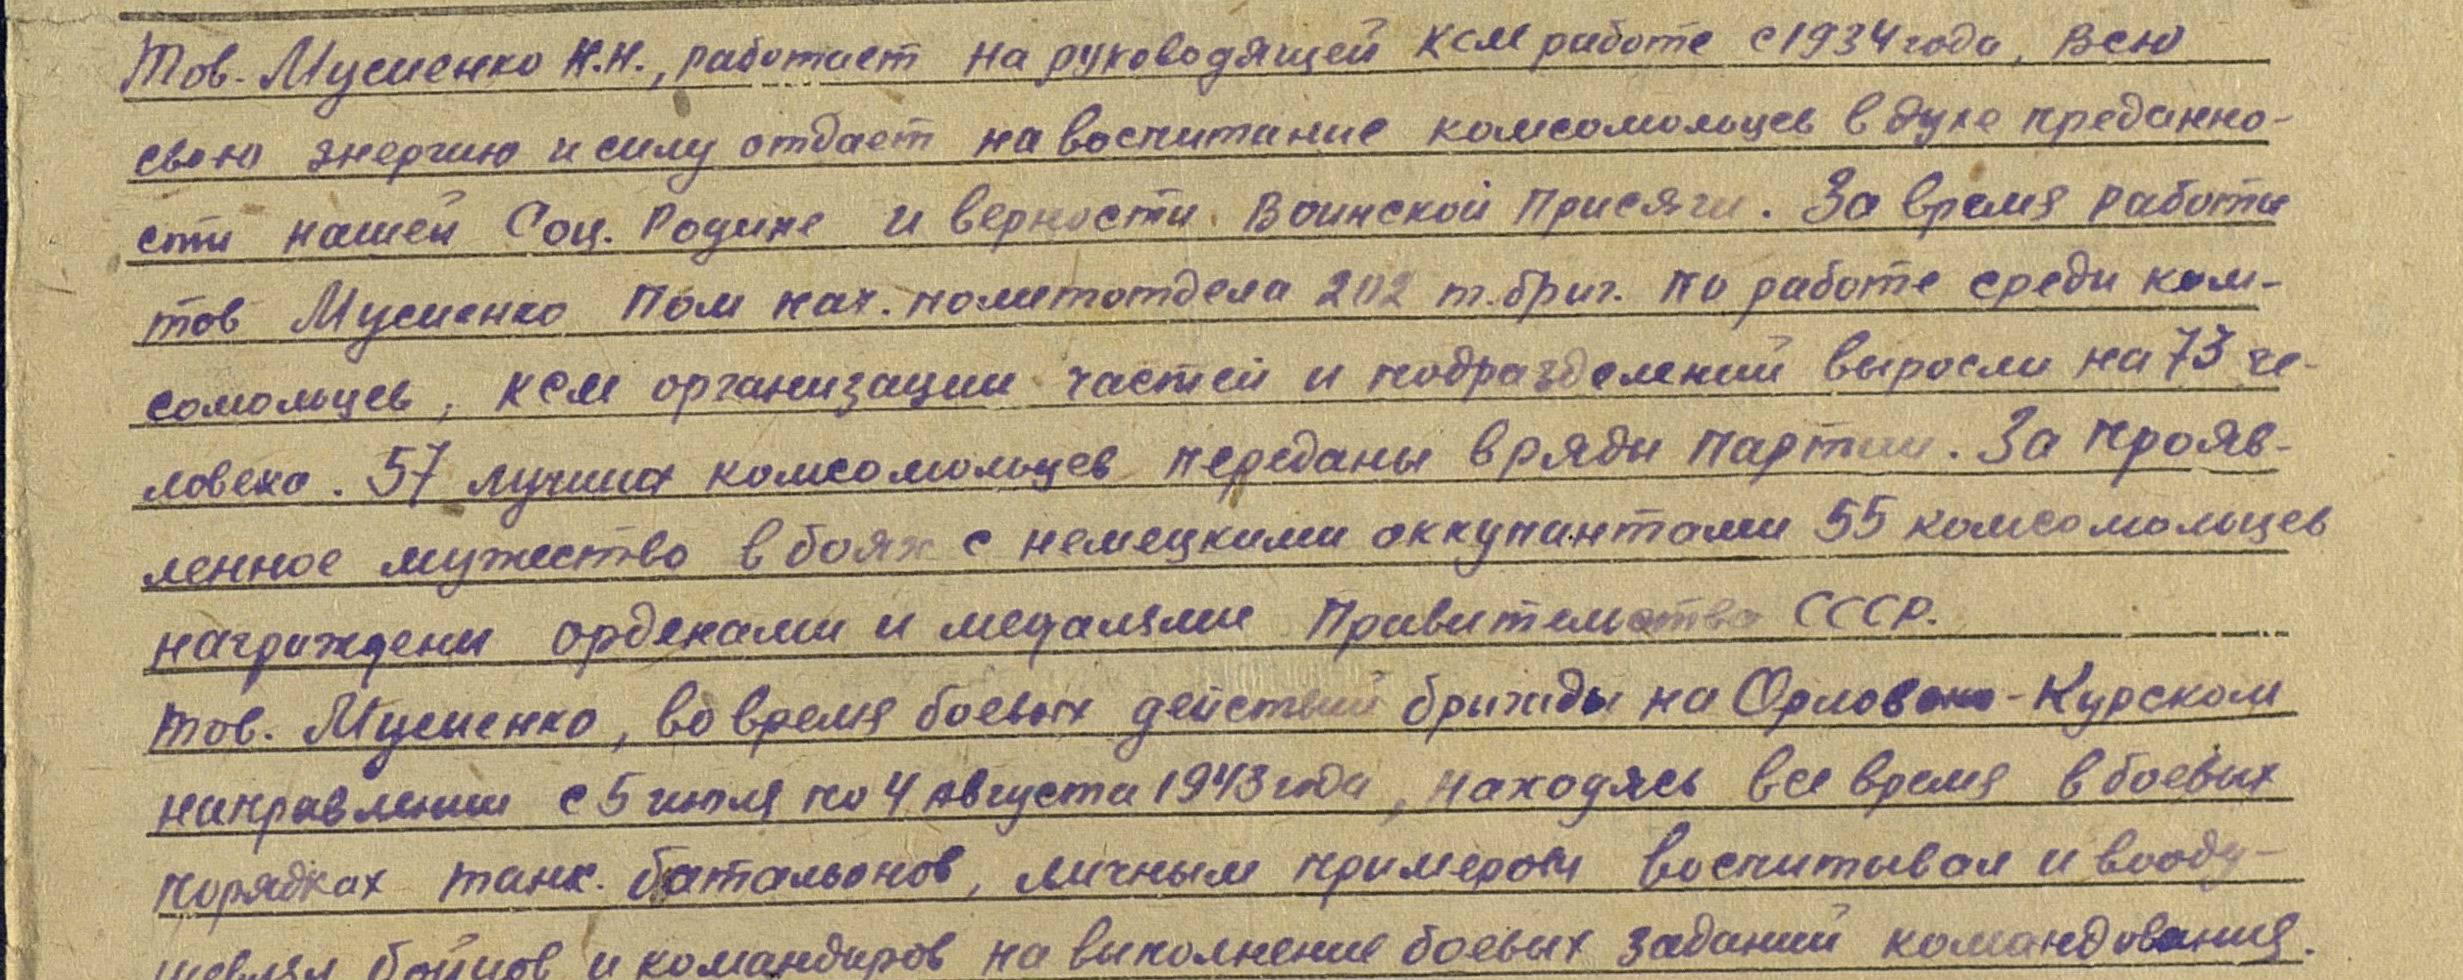 Тов. Мусиенко Н.Н., работает на руководящей КСМ работе с 1934 года, всю
свою энергию и силу отдает на воспитание комсомольцев в духе преданно-
сти нашей Соц. Родине и верности Воинской Присяги. За время работы
тов Мусиенко Пом нач. политотдела 202 т.бриг. по работе среди ком-
сомольцев, КСМ организации частей и подразделений выросли на 73 че-
ловека. 57 лучших комсомольцев переданы в ряды партии. За прояв-
ленное мужество в боях с немецкими оккупантами 55 комсомольцев
награждены орденами и медалями Правительства СССР.
Тов. Мусиенко, во время боевых действий бригады на Орловско-Курском
направлении с 5 июля по 4 августа 1943 года, находясь все время в боевых
порядках танк. батальонов, личным примером воспитывал и вооду-
шевлял бойцов и командиров на выполнение боевых заданий командования.